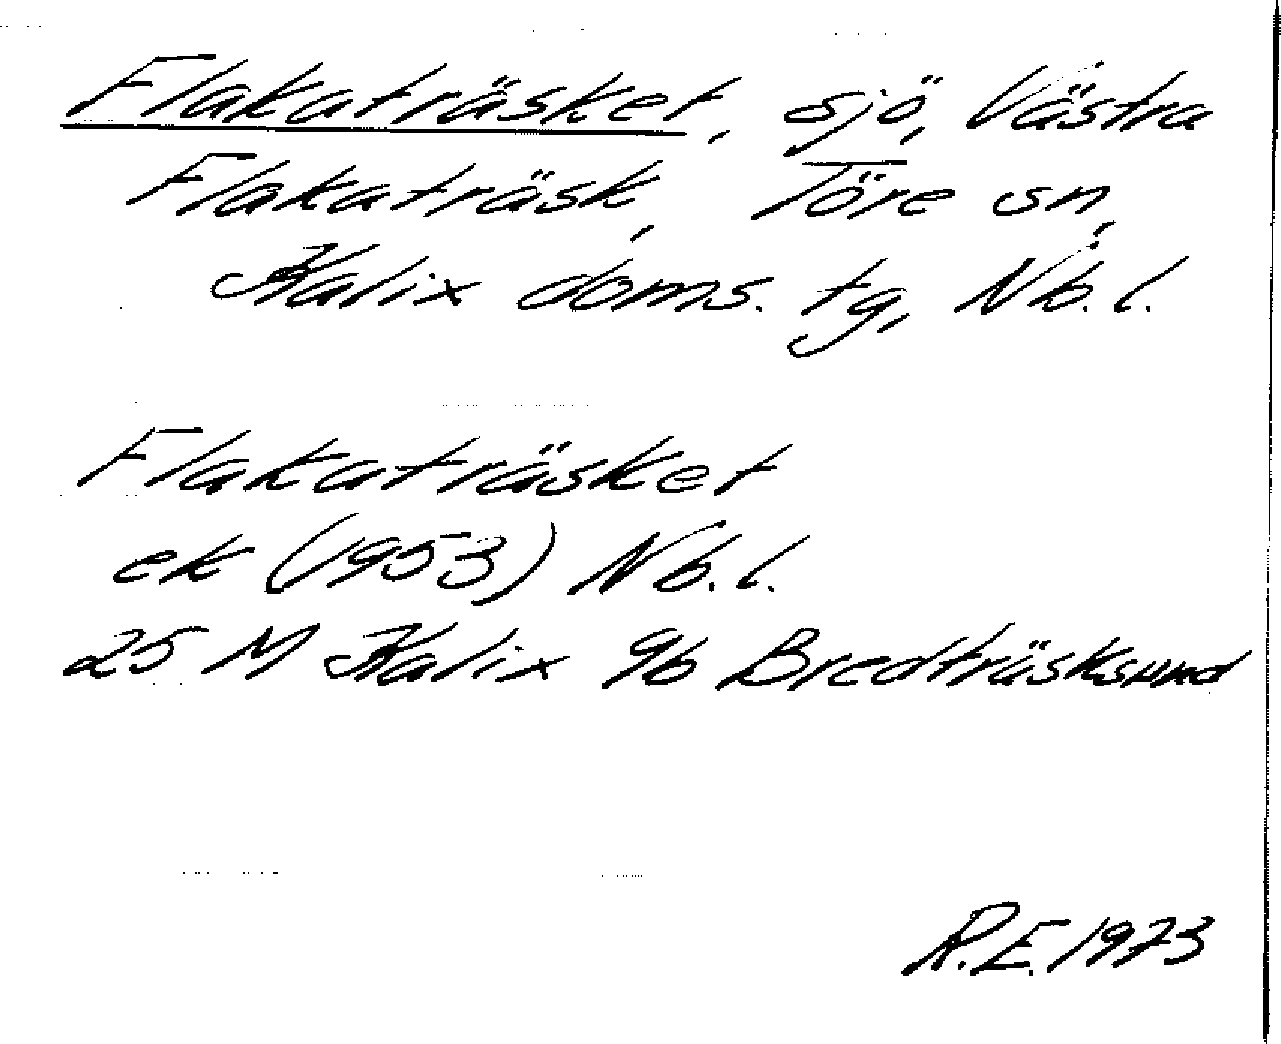 Flakaträsket, sjö, Västra
Flakaträsk, Töre sn,
Kalix doms. tg, Nb. l.
Flakaträsket
ek (1953) Nb. l.
25 M Kalix 9b Bredträsksund
R.E. 1973